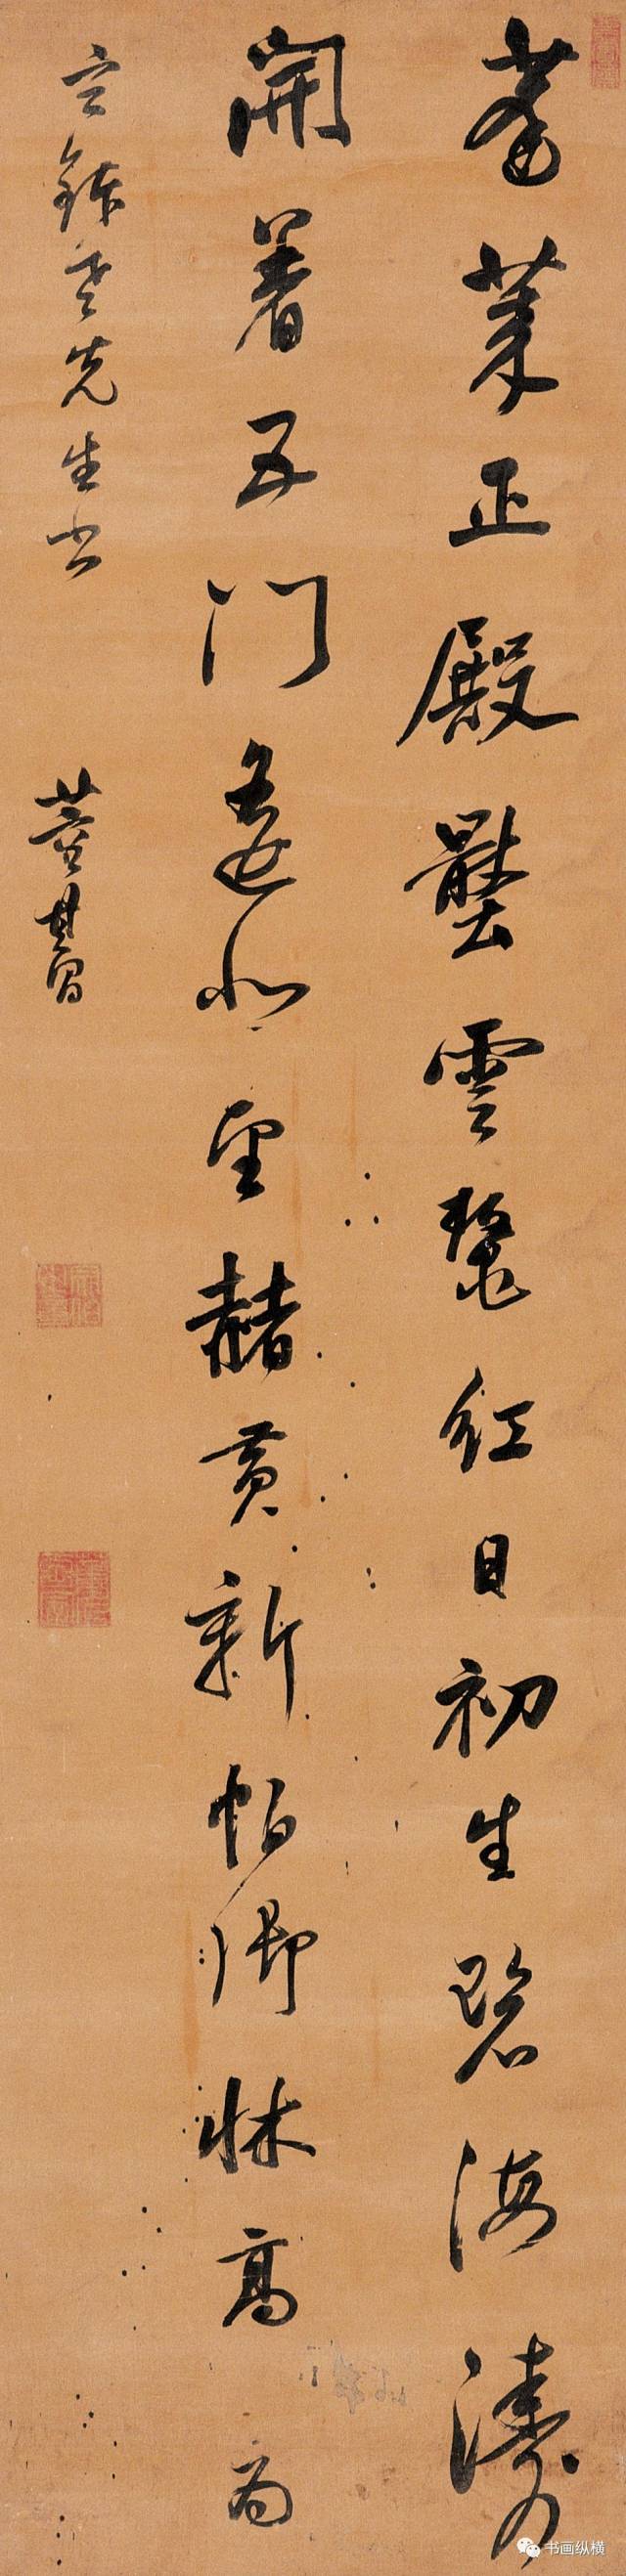 蓬萊正殿壓雲鼇紅日初生碧海濤
開着五門遙北望赭黃新帕御牀高 為
老先生書 董其昌
书画纵横